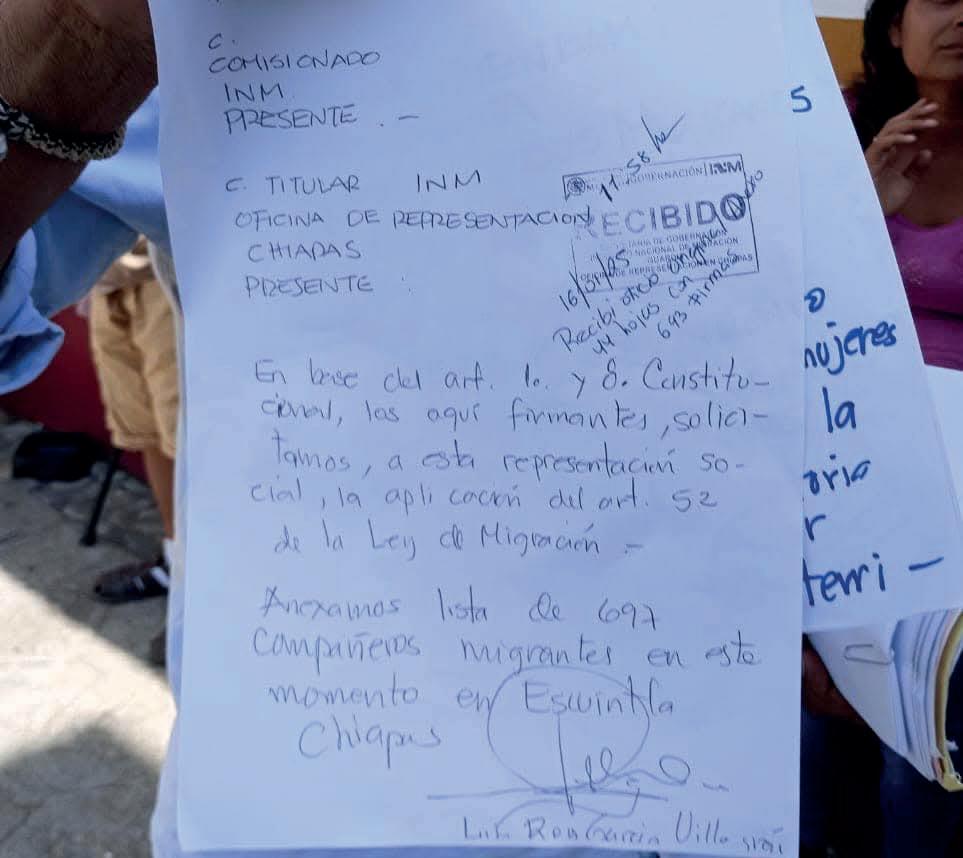 C.
COMISIONADO
INM
PRESENTE . -
C. TITULAR INM
OFICINA DE REPRESENTACION
CHIAPAS
PRESENTE :
11:58
GOBERNACIÓN INM
RECIBIDO
DE REPRESENTACIÓN EN CHIAPAS
Recibi oficio original
44 hojas con
693 firmas
En base del art. 1o. y 8. Constitu-
cional, los aquí firmantes, solici-
tamos, a esta representación so-
cial, la aplicación del art. 52
de la Ley de Migración -
Anexamos lista de 697
compañeros migrantes en este
momento en Escuintla
Chiapas
Luis Rey García Villa
S
o
mujeres
la
oria
r
terri -